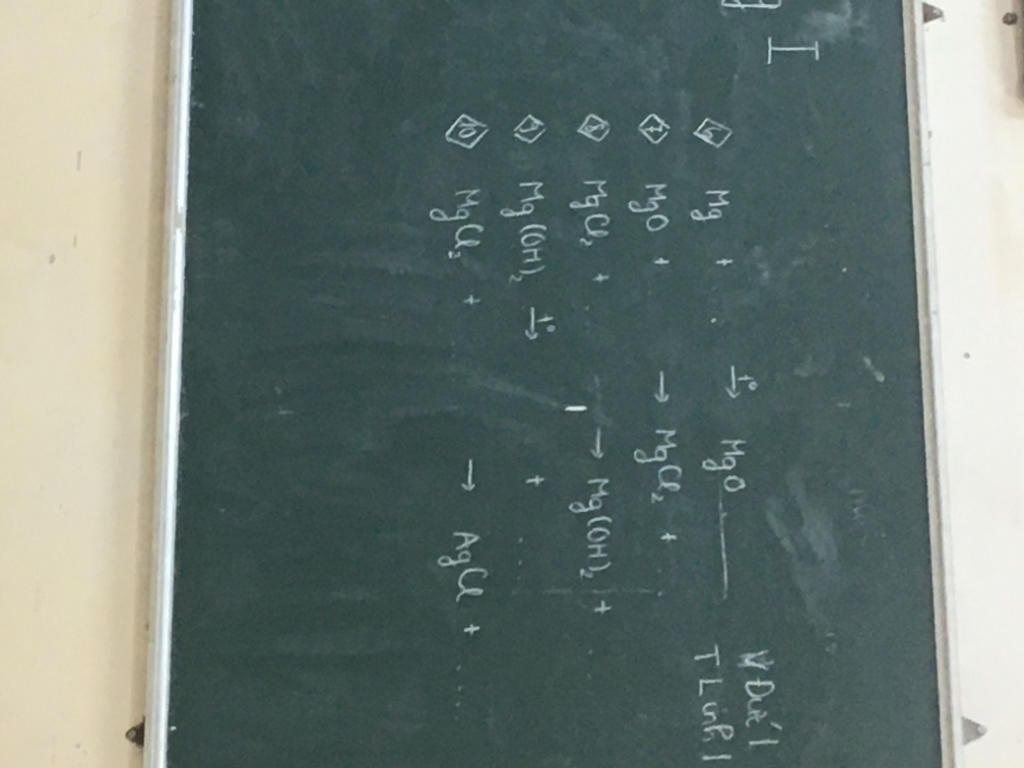 I
6 Mg + . t°→ MgO
7 MgO + → MgCl₂ + ...
8 MgCl₂ + ... → Mg(OH)₂ + ....
9 Mg(OH)₂ t°→ + ...
10 MgCl₂ + ... → AgCl + ....
T Linh 1